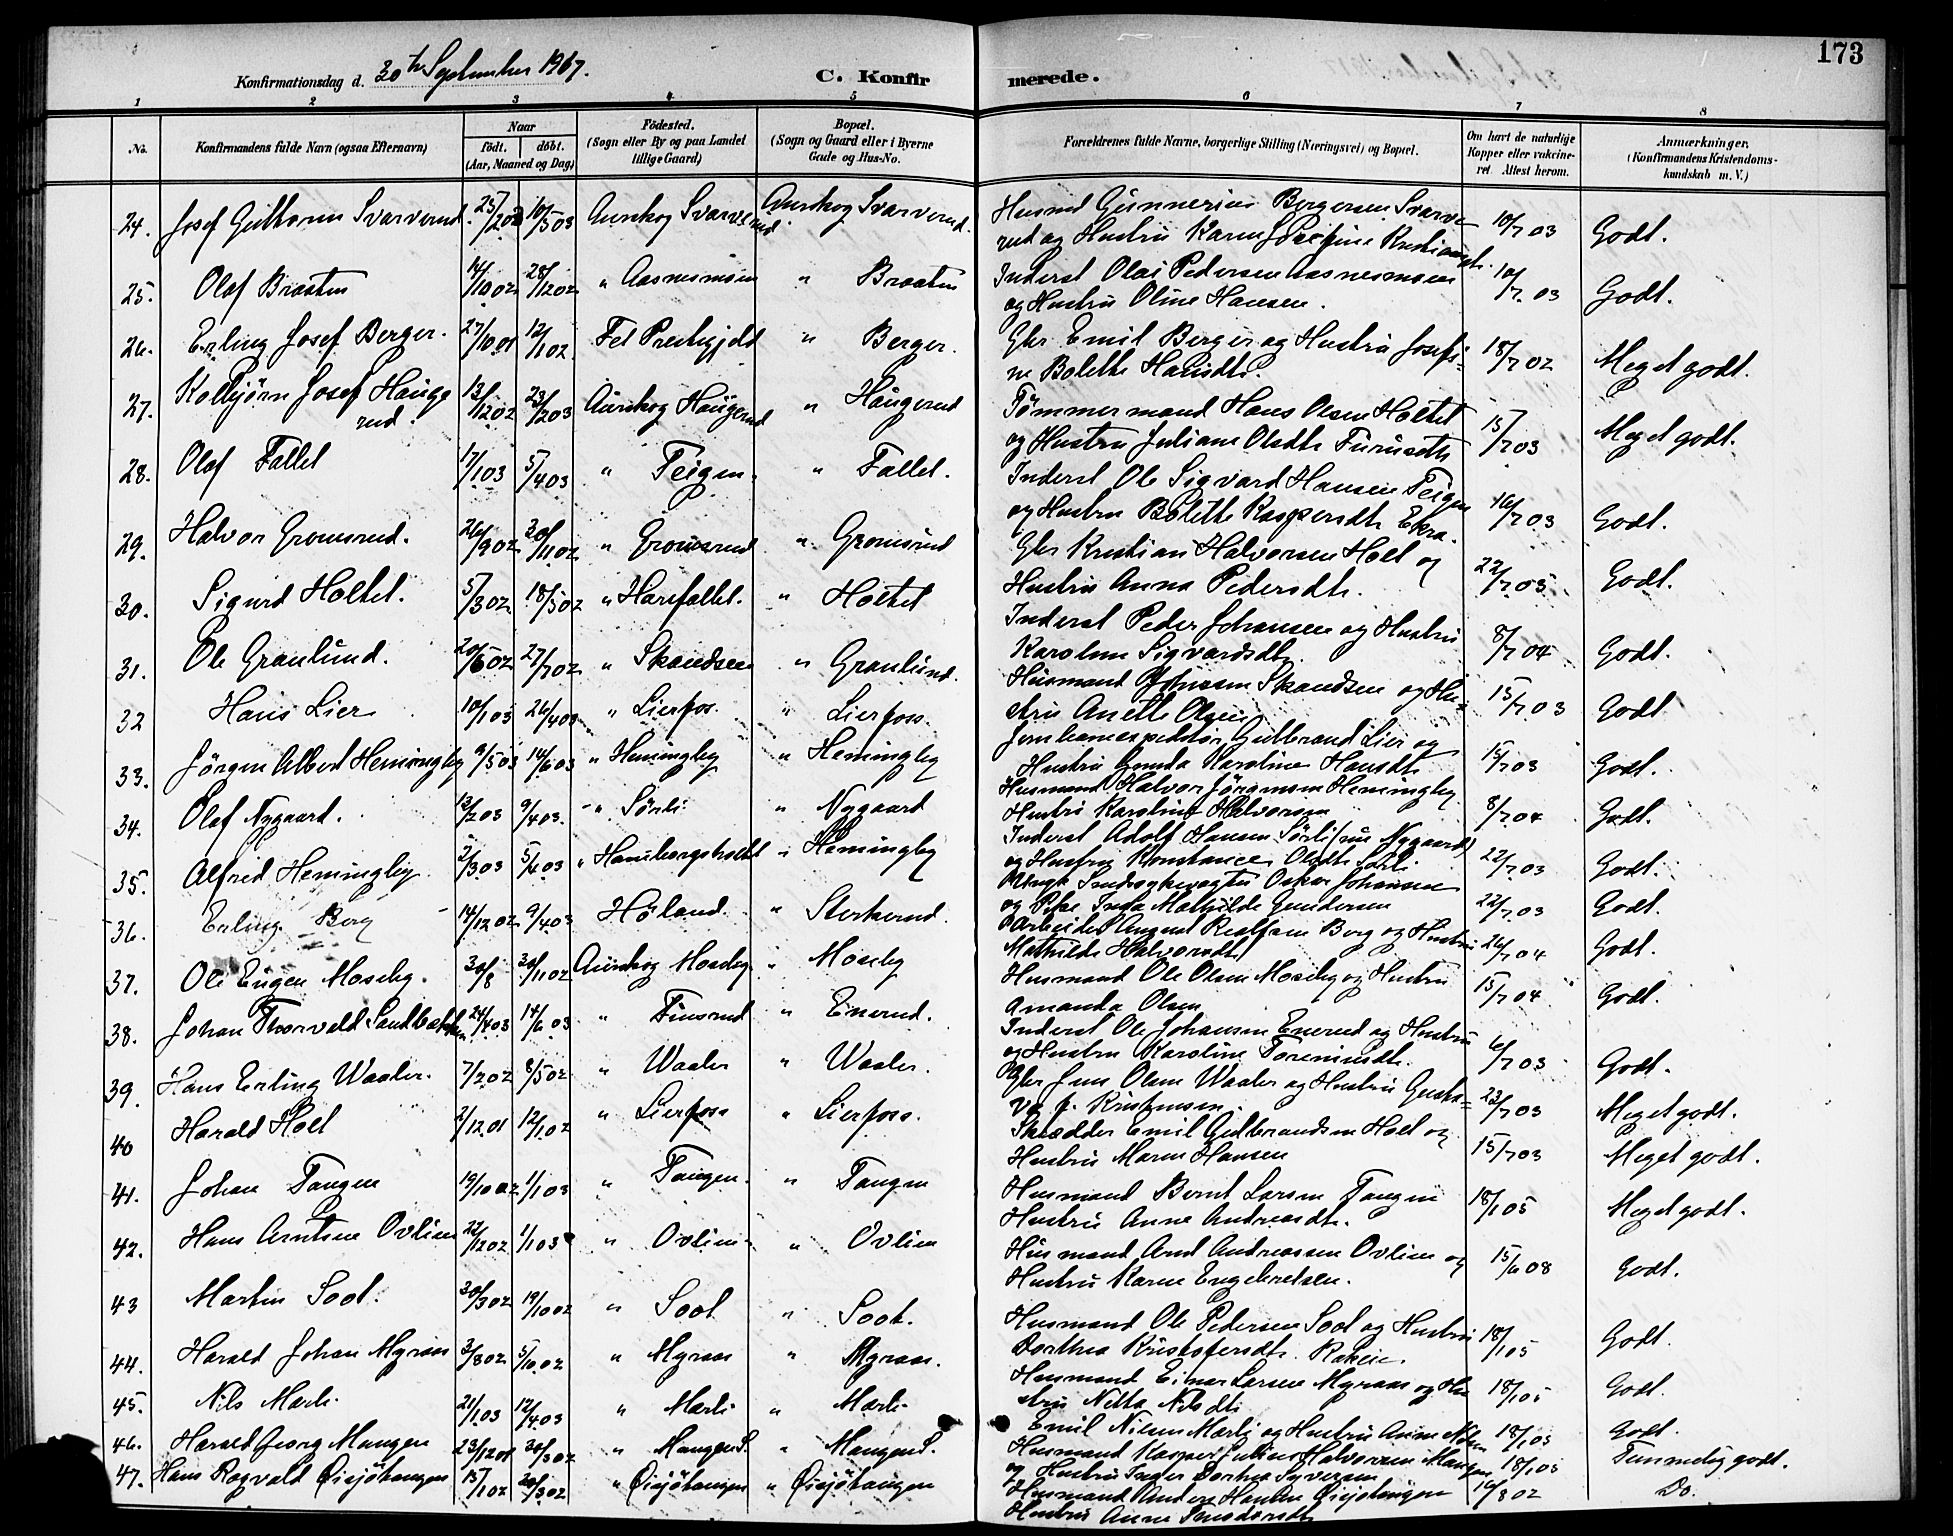 173
Konfirmationsdag d. 30te September 1917. C. Konfirmerede.
1 2 3 4 5 6 7 8
No. Konfirmandens fulde Navn (ogsaa Efternavn) Naar født. døbt. (Aar, Maaned og Dag) Fødested. (Sogn eller By og paa Landet tillige Gaard) Bopæl. (Sogn og Gaard eller i Byerne Gade og Hus-No. Forældrenes fulde Navne, borgerlige Stilling (Næringsvei) og Bopæl. Om havt de naturlige Kopper eller vakcineret. Attest herom. Anmærkninger. (Konfirmandens Kristendomskundskab m. V.)
24. Josef Guttorm Svarverud 25/2 03 10/5 03 Aurskog Svarverud Aurskog Svarverud. Husmd Gunnerius Bergersen Svarverud og Hustru Karen Josefine 10/7 03 Godt.
25. Olaf Braaten 14/10 02 28/12 02 " Aasnesmoen " Braaten Inderst Olai Pedersen Aasnesmoen og Hustru Oline Hansen. 10/7 03 Godt.
26. Erling Josef Berger. 27/10 01 12/1 02 Fet Prestegjeld " Berger. Gbr Emil Berger og Hustru Josefine Bolette Hansdt. 18/7 02 Meget godt.
27. Kolbjørn Josef Haugerud 13/12 02 23/2 03 Aurskog Haugerud " Haugerud Tømmermand Hans Olsen Holtet og Hustru Juliane Olsdt Furuseth 15/7 03 Meget godt.
28. Olaf Fallet 17/1 03 5/4 03 " Teigen. " Fallet. Inderst Ole Sigvard Hansen Teigen og Hustru Bolette Kaspersdt Ekra. 16/7 03 Godt.
29. Halvor Gromsrud. 26/9 02 30/11 02 " Gromsrud " Gromsrud Gbr Kristian Halvorsen Hoel og Hustru Anna Pedersdt. 22/7 05 Godt.
30. Sigurd Holtet. 5/3 02 18/5 02 " Harefallet. " Holtet Inderst Peder Johansen og Hustru Karoline Sigvardsdt. 8/7 04 Godt.
31. Ole Granlund. 20/5 02 27/7 02 " Skandsen " Granlund. Husmand Johansen Skandsen og Hustru Anette Olsen 15/7 03 Godt
32 Hans Lier 10/1 03 26/4 03 " Lierfos. " Lierfoss. Jernbaneexpeditør Gulbrand Lier og Hustru Karoline Hansdt 15/7 03 Godt.
33. Jørgen Albert Hemingby 9/5 03 14/6 03 " Hemingby " Hemingby Husmand Halvor Jørgensen Hemingby Hustru Karoline Halvorsen 8/7 04 Godt.
34. Olaf Nygaard. 13/2 03 9/4 03. " Sørli " Nygaard Inderst Adolf Hansen Sørli (nu Nygaard) og Hustru Konstance Olsdt Sørli 22/7 03 Godt.
35. Alfred Hemingby 2/3 03 5/4 03 " " Hemingby Oskar Johansen og Pike Inga Mathilde Gundersen 22/7 03 Godt.
36. Erling Berg 14/12 02 9/4 03 Høland. " Sterkerud. Arbeider August Berg og Hustru Mathilde Halvorsdt 26/7 04 Godt.
37. Ole Eugen Moseby. 30/8 30/11 02 Aurskog Moseby. " Moseby Husmand Ole Olsen Moseby og Hustru Amanda Olsen 15/7 04 Godt.
38. Johan Thorvald Sandbækken 24/4 03 14/6 03 " Finsrud " Enerud. Inderst Ole Johansen Enerud og Hustru og Hustru Karoline 6/7 03 Godt.
39. Hans Erling Waaler. 7/2 02 8/5 02 " Waaler " Waaler. Gbr Jens Olsen Waaler og Hustru Gustava J. Kristensen. 23/7 03 Meget godt.
40 Harald Hoel 2/12 01 12/1 02 " Lierfoss " Lierfoss. Skrædder Emil Gulbrandsen Hoel og Hustru Maren Hansen 15/7 03 Meget godt.
41. Johan Tangen 19/10 02 1/1 03 " Tangen. " Tangen Husmand Bernt Larsen Tangen Hustru Anne Andreasdt. 18/1 05 Meget godt.
42. Hans Arntsen Ovlien 22/12 02 1/1 03 " Ovlien " Ovlien Husmand Arnt Andreassen Ovlien og Hustru Karen Engebretsen. 15/6 08 Godt.
43 Martin Soot. 30/3 02 19/10 02 " Soot " Soot. Husmand Ole Pedersen Soot og Hustru Dorthea Kristofersdt. 18/1 05 Godt.
44. Harald Johan Myraas 3/8 02 5/10 02 " Myraas " Myraas. Husmand Einar Larsen Myraas og Hustru Netta Nilsdt 18/1 05 Godt.
45. Nils Mærli. 21/1 03 12/4 03 " Mærli " Mærli Emil Nilsen Mærli og Hustru Anne 18/1 05 Godt.
46. Harald Georg Mangen 23/12 01 30/3 02 " Mangen S. " Mangen S. Husmand Kasper Julius Halvorsen Mangen og Hustru Inger Dorthea Syversen 18/1 05 Temmelig godt.
47. Hans Ragvald Øisjøtangen 15/1 02 30/3 02 " Øisjøtangen " Øisjøtangen Husmand Anders Hansen Øisjøtangen Hustru Anne 16/8 02 Do.